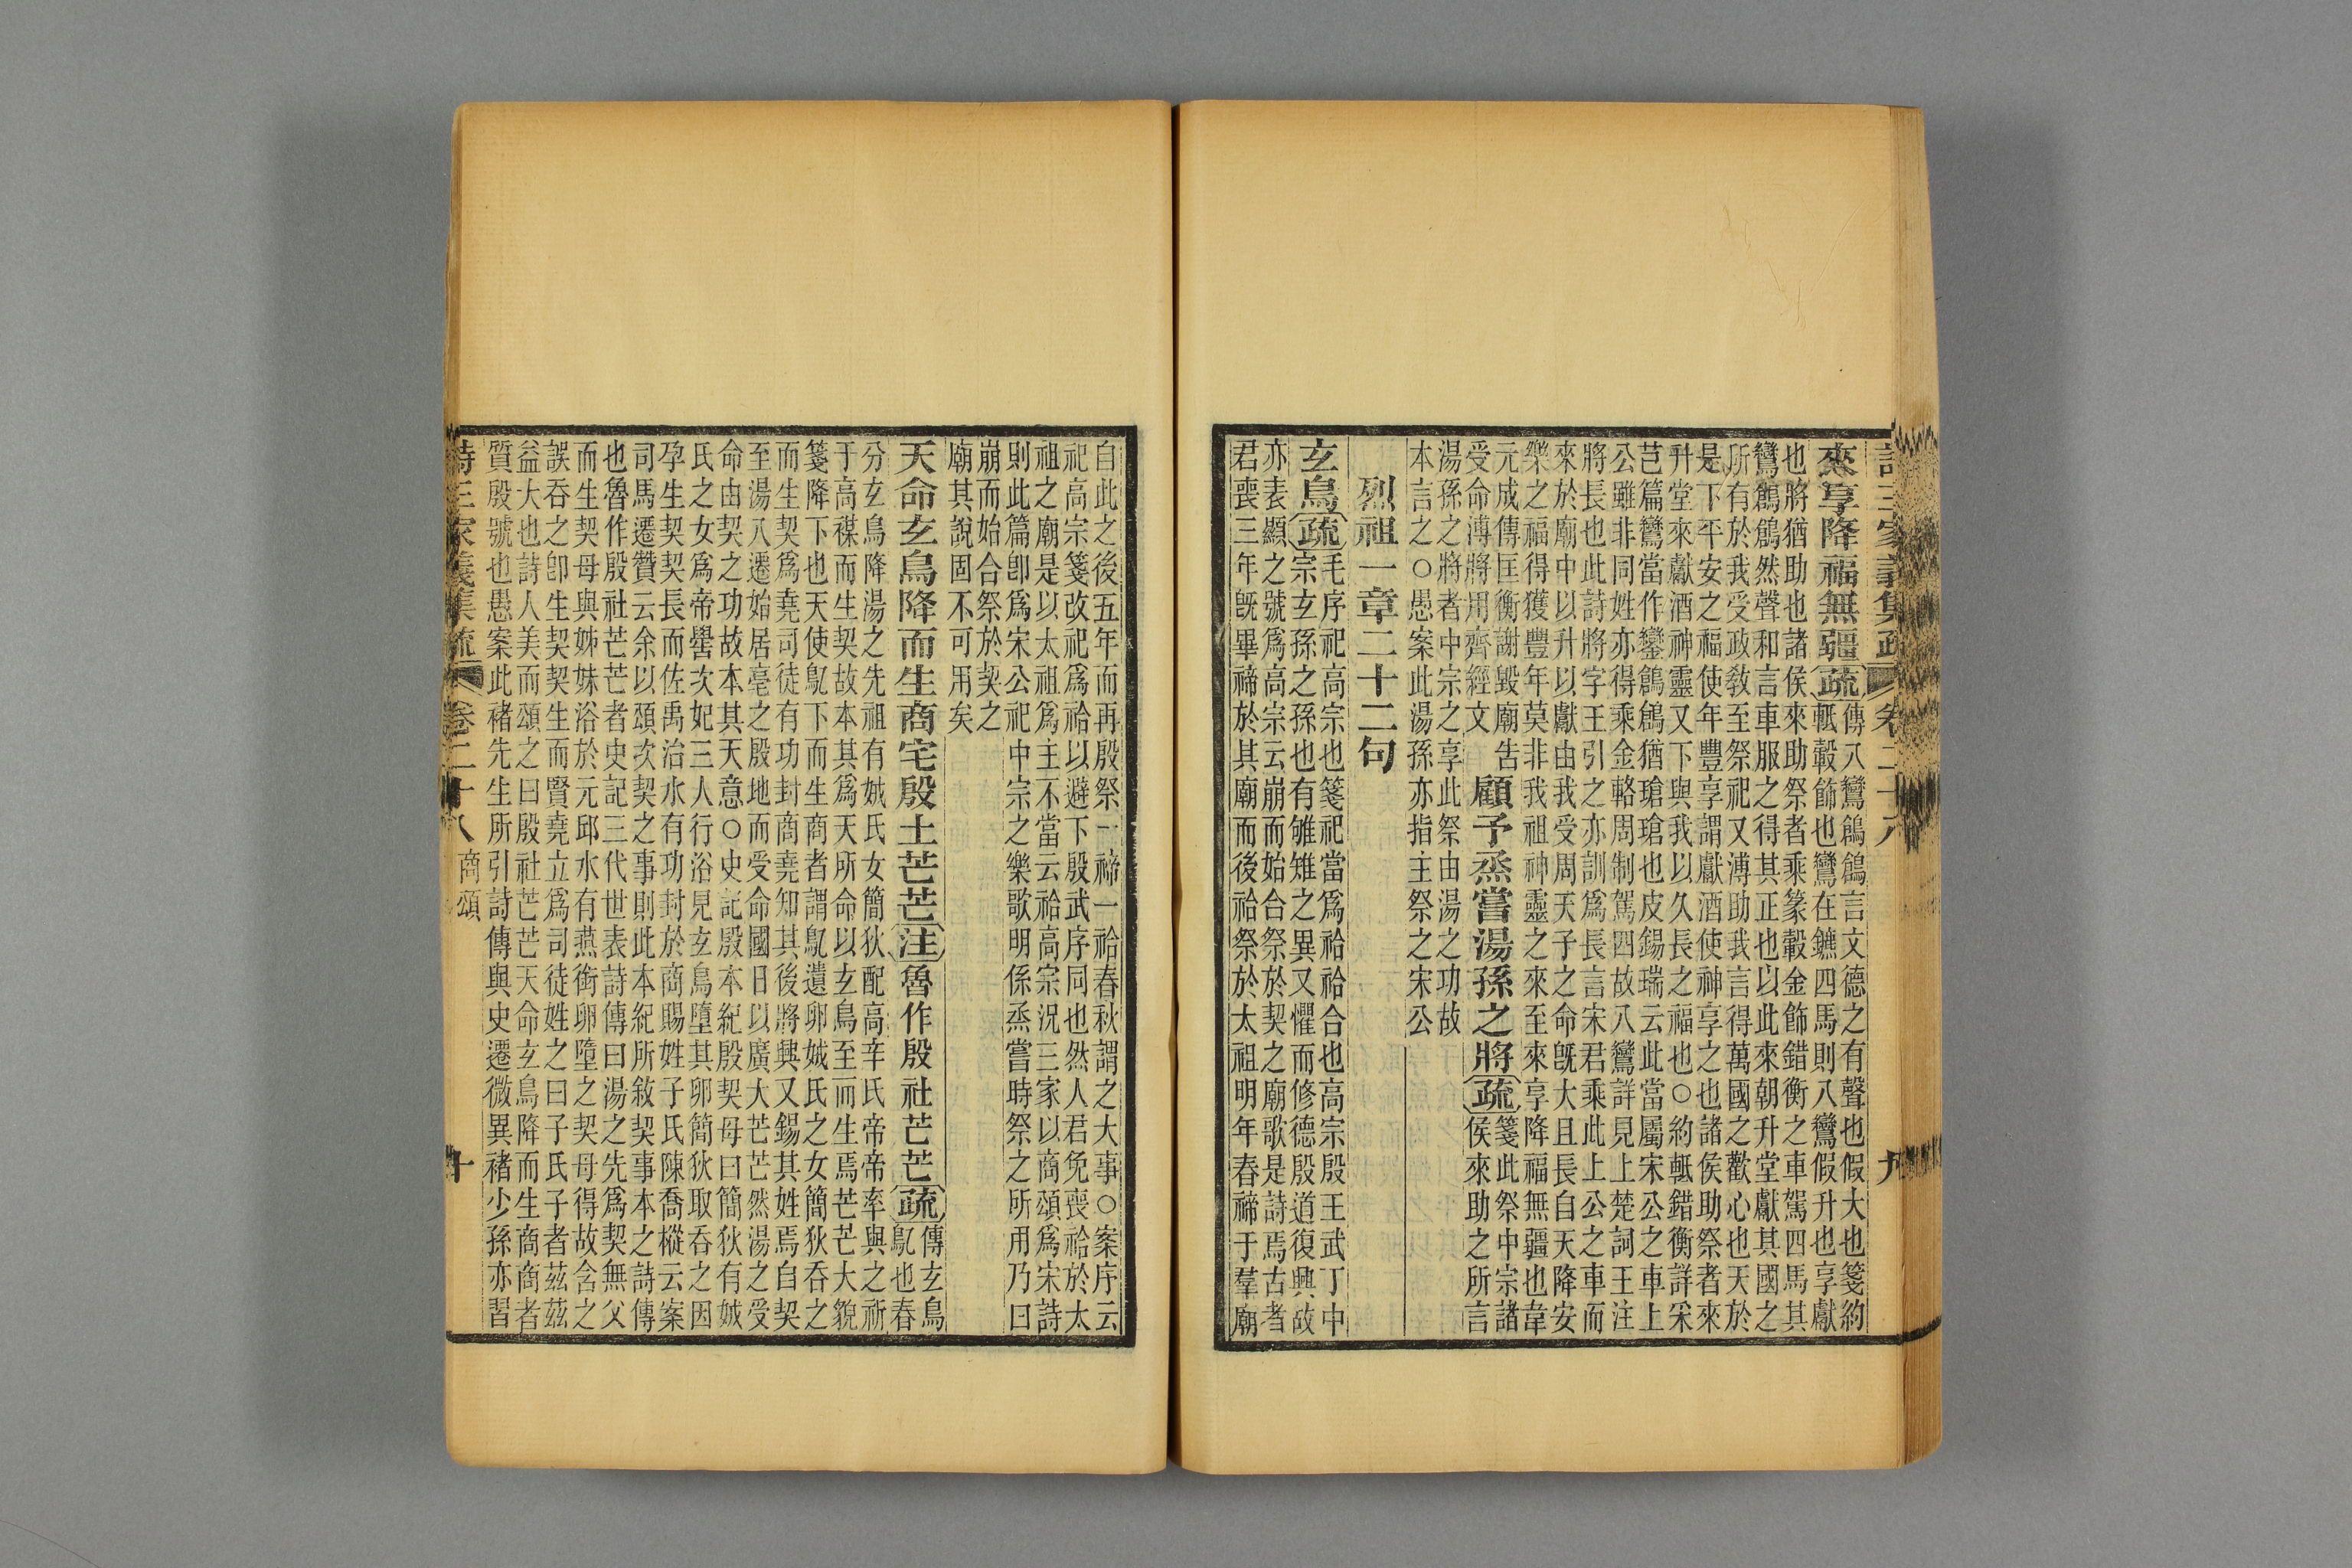 詩三家義集疏　卷二十八　九
來享降福無疆疏傳八鸞鶬鶬言文德之有聲也假大也箋約
軝轂飾也鸞在鑣四馬則八鸞假升也享獻
也將猶助也諸侯來助祭者乘篆轂金飾錯衡之車駕四馬其
鸞鶬鶬然聲和言車服之得其正也以此來朝升堂獻其國之
所有於我受政敎至祭祀又溥助我言得萬國之歡心也天於
是下平安之福使年豐享謂獻酒使神享之也諸侯助祭者來
升堂來獻酒神靈又下與我以久長之福也○約軝錯衡詳采
芑篇鸞當作鑾鶬鶬猶瑲瑲也皮錫瑞云此當屬宋公之車上
公雖非同姓亦得乘金輅周制駕四故八鸞詳見上楚詞王注
將長也此詩將字王引之亦訓爲長言宋君乘此上公之車而
來於廟中以升以獻由我受周天子之命旣大且長自天降安
樂之福得獲豐年莫非我祖神靈之來至來享降福無疆也韋
元成傳匡衡謝毀廟告
受命溥將用齊經文
顧予烝嘗湯孫之將疏箋此祭中宗諸
侯來助之所言
湯孫之將者中宗之享此祭由湯之功故
本言之○愚案此湯孫亦指主祭之宋公
烈祖一章二十二句
玄鳥疏毛序祀高宗也箋祀當爲祫祫合也高宗殷王武丁中
宗玄孫之孫也有雊雉之異又懼而修德殷道復興故
亦表顯之號爲高宗云崩而始合祭於契之廟歌是詩焉古者
君喪三年旣畢禘於其廟而後祫祭於太祖明年春禘于羣廟
自此之後五年而再殷祭一禘一祫春秋謂之大事○案序云
祀高宗箋改祀爲祫以避下殷武序同也然人君免喪祫於太
祖之廟是以太祖爲主不當云祫高宗況三家以商頌爲宋詩
則此篇卽爲宋公祀中宗之樂歌明係烝嘗時祭之所用乃曰
崩而始合祭於契之
廟其說固不可用矣
天命玄鳥降而生商宅殷土芒芒注魯作殷社芒芒疏傳玄鳥
鳦也春
分玄鳥降湯之先祖有娀氏女簡狄配高辛氏帝帝率與之祈
于高禖而生契故本其爲天所命以玄鳥至而生焉芒芒大貌
箋降下也天使鳦下而生商者謂鳦遺卵娀氏之女簡狄吞之
而生契爲堯司徒有功封商堯知其後將興又錫其姓焉自契
至湯八遷始居亳之殷地而受命國日以廣大芒芒然湯之受
命由契之功故本其天意○史記殷本紀殷契母曰簡狄有娀
氏之女爲帝嚳次妃三人行浴見玄鳥墮其卵簡狄取吞之因
孕生契契長而佐禹治水有功封於商賜姓子氏陳喬樅云案
司馬遷贊云余以頌次契之事則此本紀所敘契事本之詩傳
也魯作殷社芒芒者史記三代世表詩傳曰湯之先爲契無父
而生契母與姊妹浴於元邱水有燕銜卵墮之契母得故含之
誤吞之卽生契契生而賢堯立爲司徒姓之曰子氏子者茲茲
益大也詩人美而頌之曰殷社芒芒天命玄鳥降而生商商者
質殷號也愚案此褚先生所引詩傳與史遷微異褚少孫亦習
詩三家義集疏　卷二十八　商頌　十